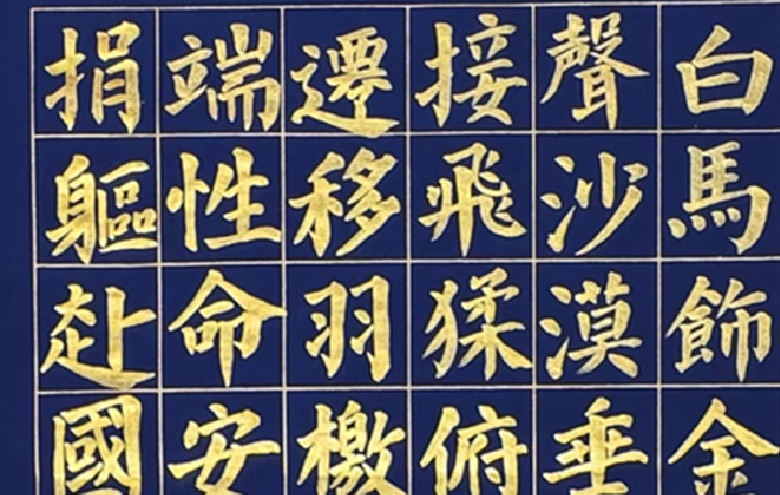 白馬飾金
聲沙漠垂
接飛猱俯
遷移羽檄
端性命安
捐軀赴國